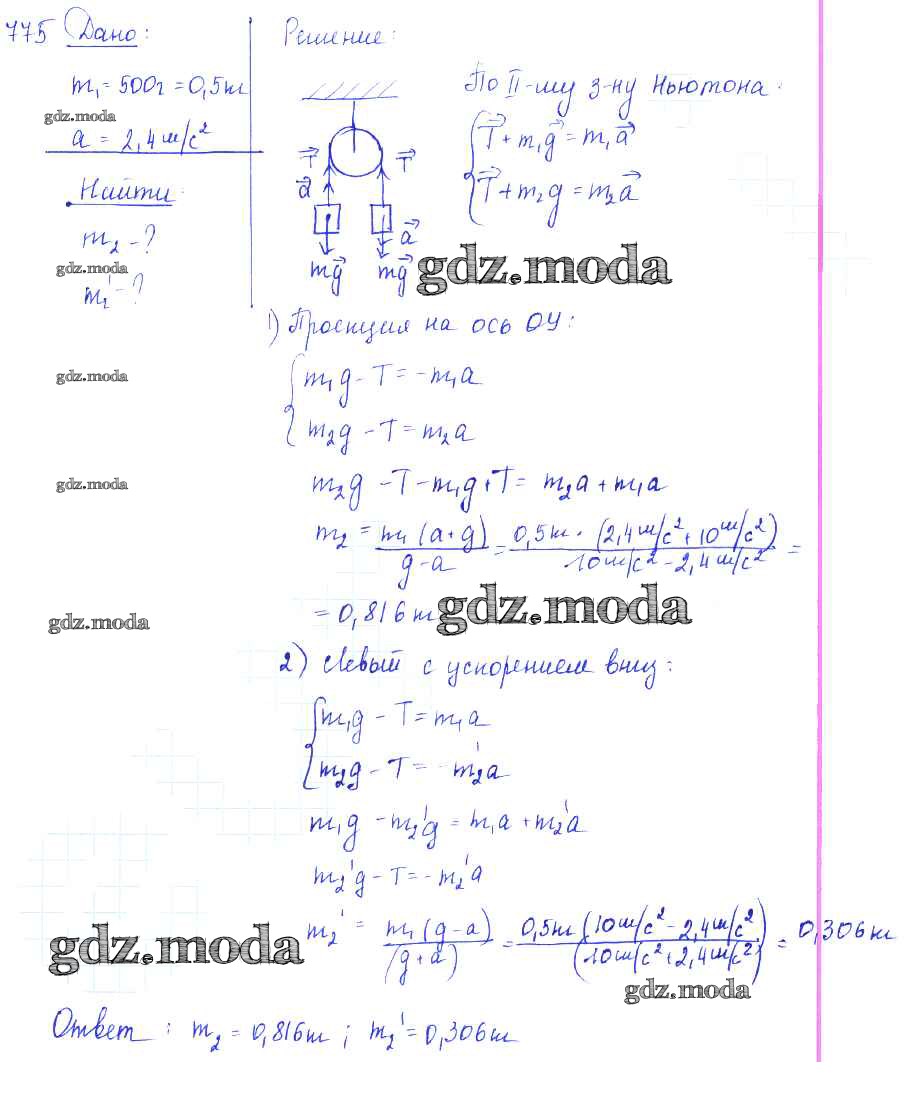 775 Дано:
m₁ = 500г = 0,5кг
gdz.moda
a = 2,4 м/с²
Найти:
m₂ - ?
gdz.moda
m₂' - ?
Решение:
T⃗ T⃗
a⃗
a⃗
mg⃗ mg⃗
По II-му з-ну Ньютона:
T⃗ + m₁g⃗ = m₁a⃗
T⃗ + m₂g = m₂a⃗
gdz.moda
1) Проекция на ось ОУ:
m₁g - T = -m₁a
gdz.moda
m₂g - T = m₂a
gdz.moda
m₂g - T - m₁g + T = m₂a + m₁a
m₂ = m₁(a+g)/(g-a) = 0,5кг · (2,4м/с² + 10м/с²)/(10м/с² - 2,4м/с²) =
= 0,816 кг
gdz.moda
gdz.moda
2) Левый с ускорением вниз:
m₁g - T = m₁a
m₂g - T = -m₂'a
m₁g - m₂'g = m₁a + m₂'a
m₂'g - T = -m₂'a
m₂' = m₁(g-a)/(g+a) = 0,5кг(10м/с² - 2,4м/с²)/(10м/с² + 2,4м/с²) = 0,306кг
gdz.moda
gdz.moda
Ответ: m₂ = 0,816кг; m₂' = 0,306кг